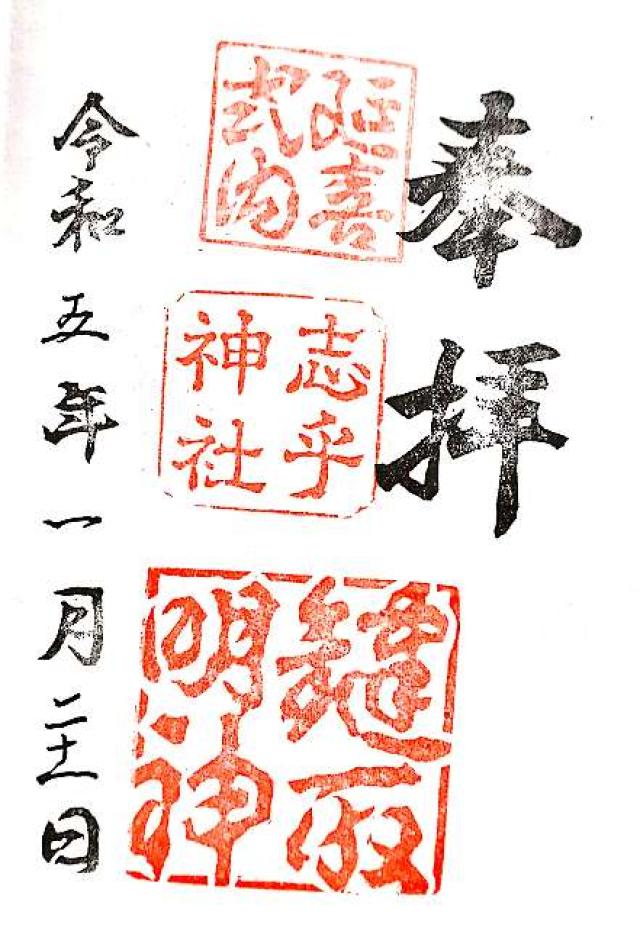 奉拝
延喜
式内
志乎
神社
鍵取
明神
令和五年一月二十一日